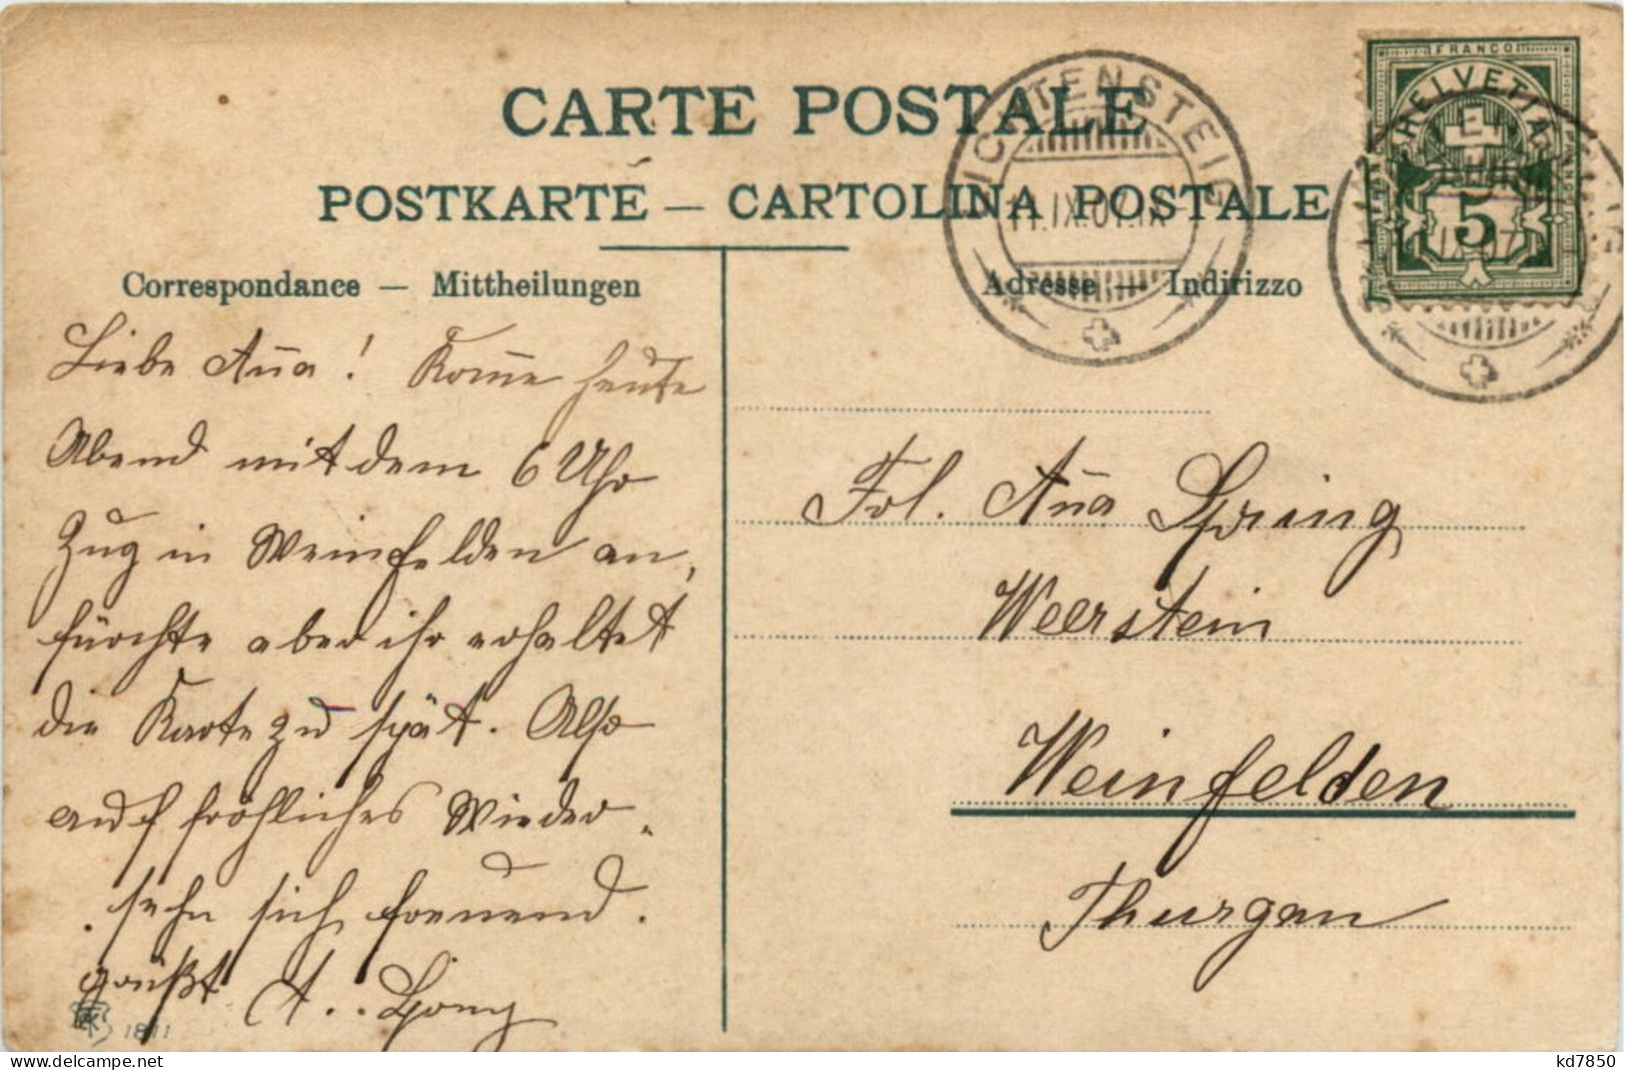 CARTE POSTALE
POSTKARTE — CARTOLINA POSTALE
Correspondance — Mittheilungen
Adresse — Indirizzo
FRANCO
HELVETIA
5
LICHTENSTEIG
11.IX.07.IX
IX.07
Liebe Anna! Komme heute
Abend mit dem 6 Uhr
Zug in Weinfelden an,
fürchte aber ihr erhaltet
die Karte zu spät. Also
auf fröhliches Wieder-
sehn sich freuend.
grüßt A..
Frl. Anna Spring
Weerstein
Weinfelden
Thurgau
1811
kd7850
www.delcampe.net